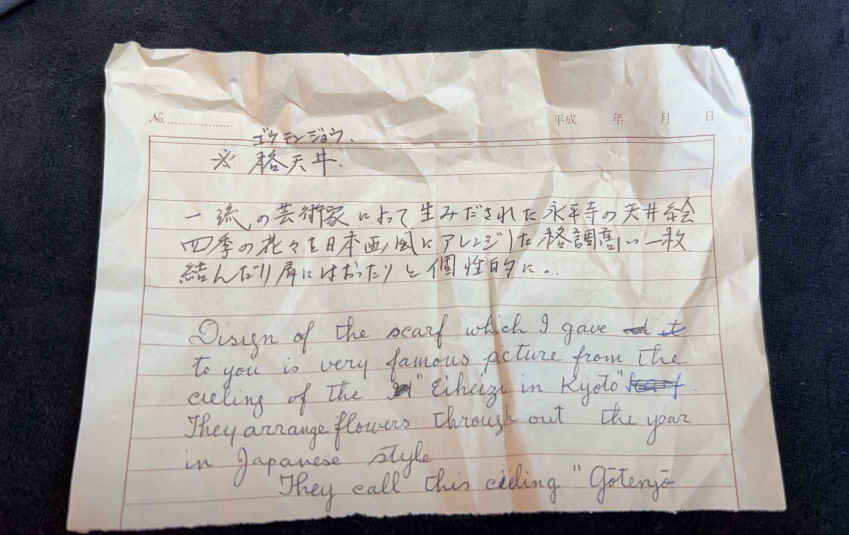 No.
平成 年 月 日
ゴウテンジョウ.
※ 格天井.
一流の芸術家によって生みだされた永平寺の天井絵
四季の花々を日本画風にアレンジした格調高い一枚
結んだり肩にはおったりと個性的に..
Disign of the scarf which I gave it
to you is very famous picture from the
cieling of the "Eiheizi in Kyoto"
They arrange flowers through out the year
in Japanese style
They call this cieling "Gōtenjō